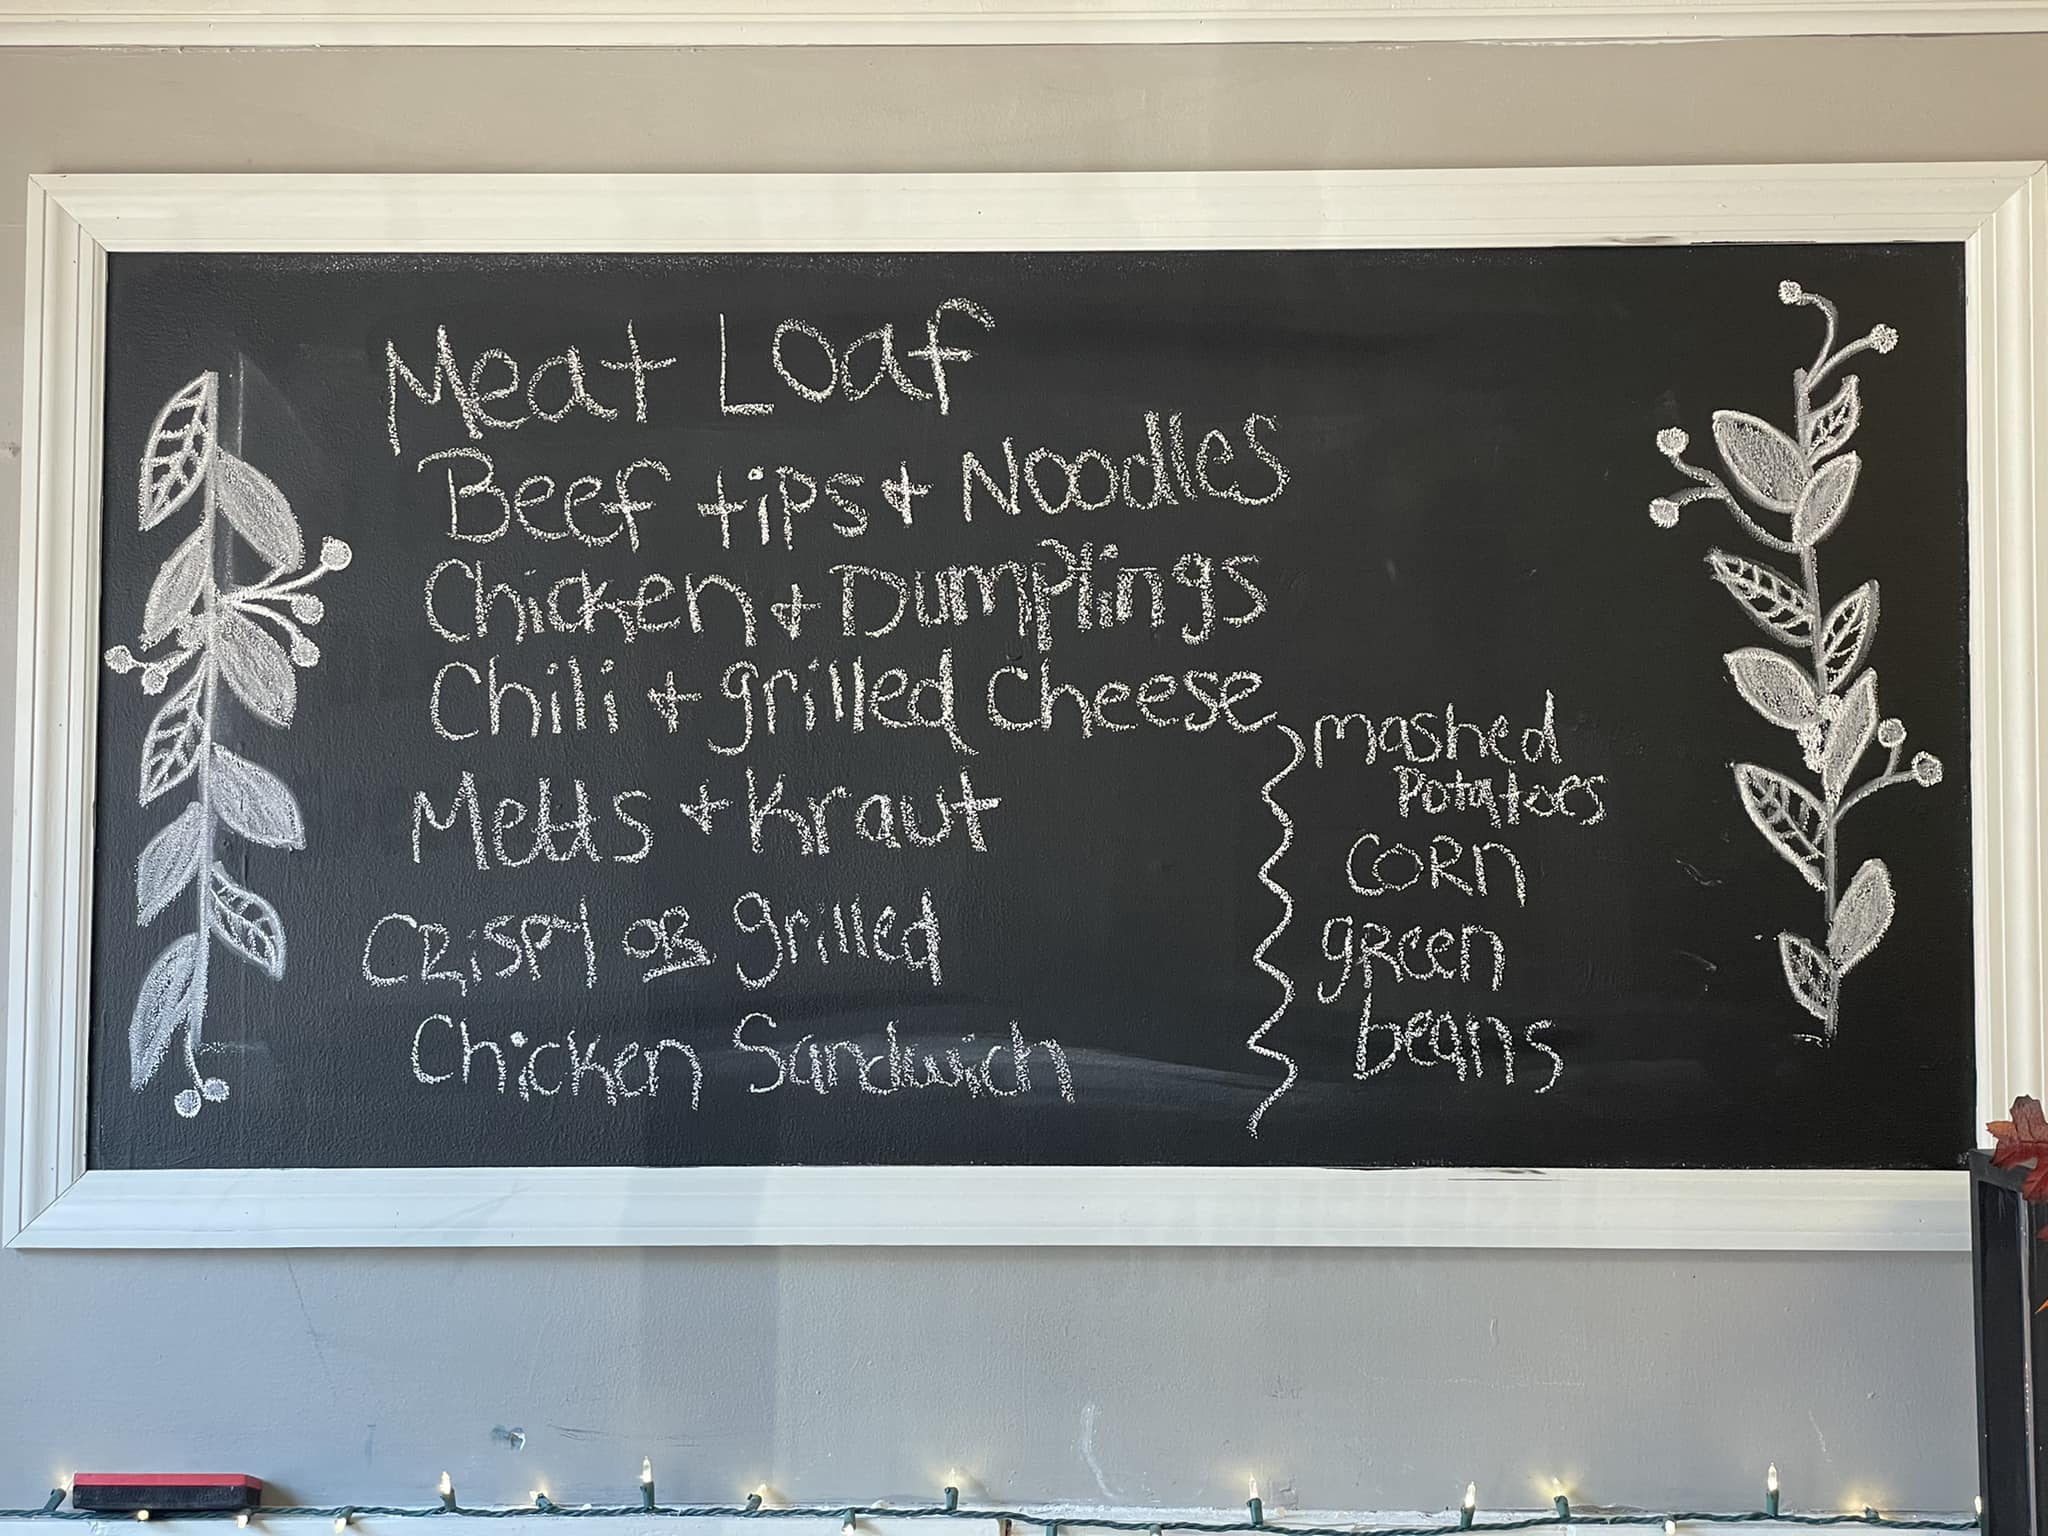 Meat Loaf
Beef tips + Noodles
Chicken + Dumplings
Chili + grilled Cheese
Metts + Kraut
CRiSPY OR grilled
Chicken Sandwich
mashed
Potatoes
CORn
gReen
beans